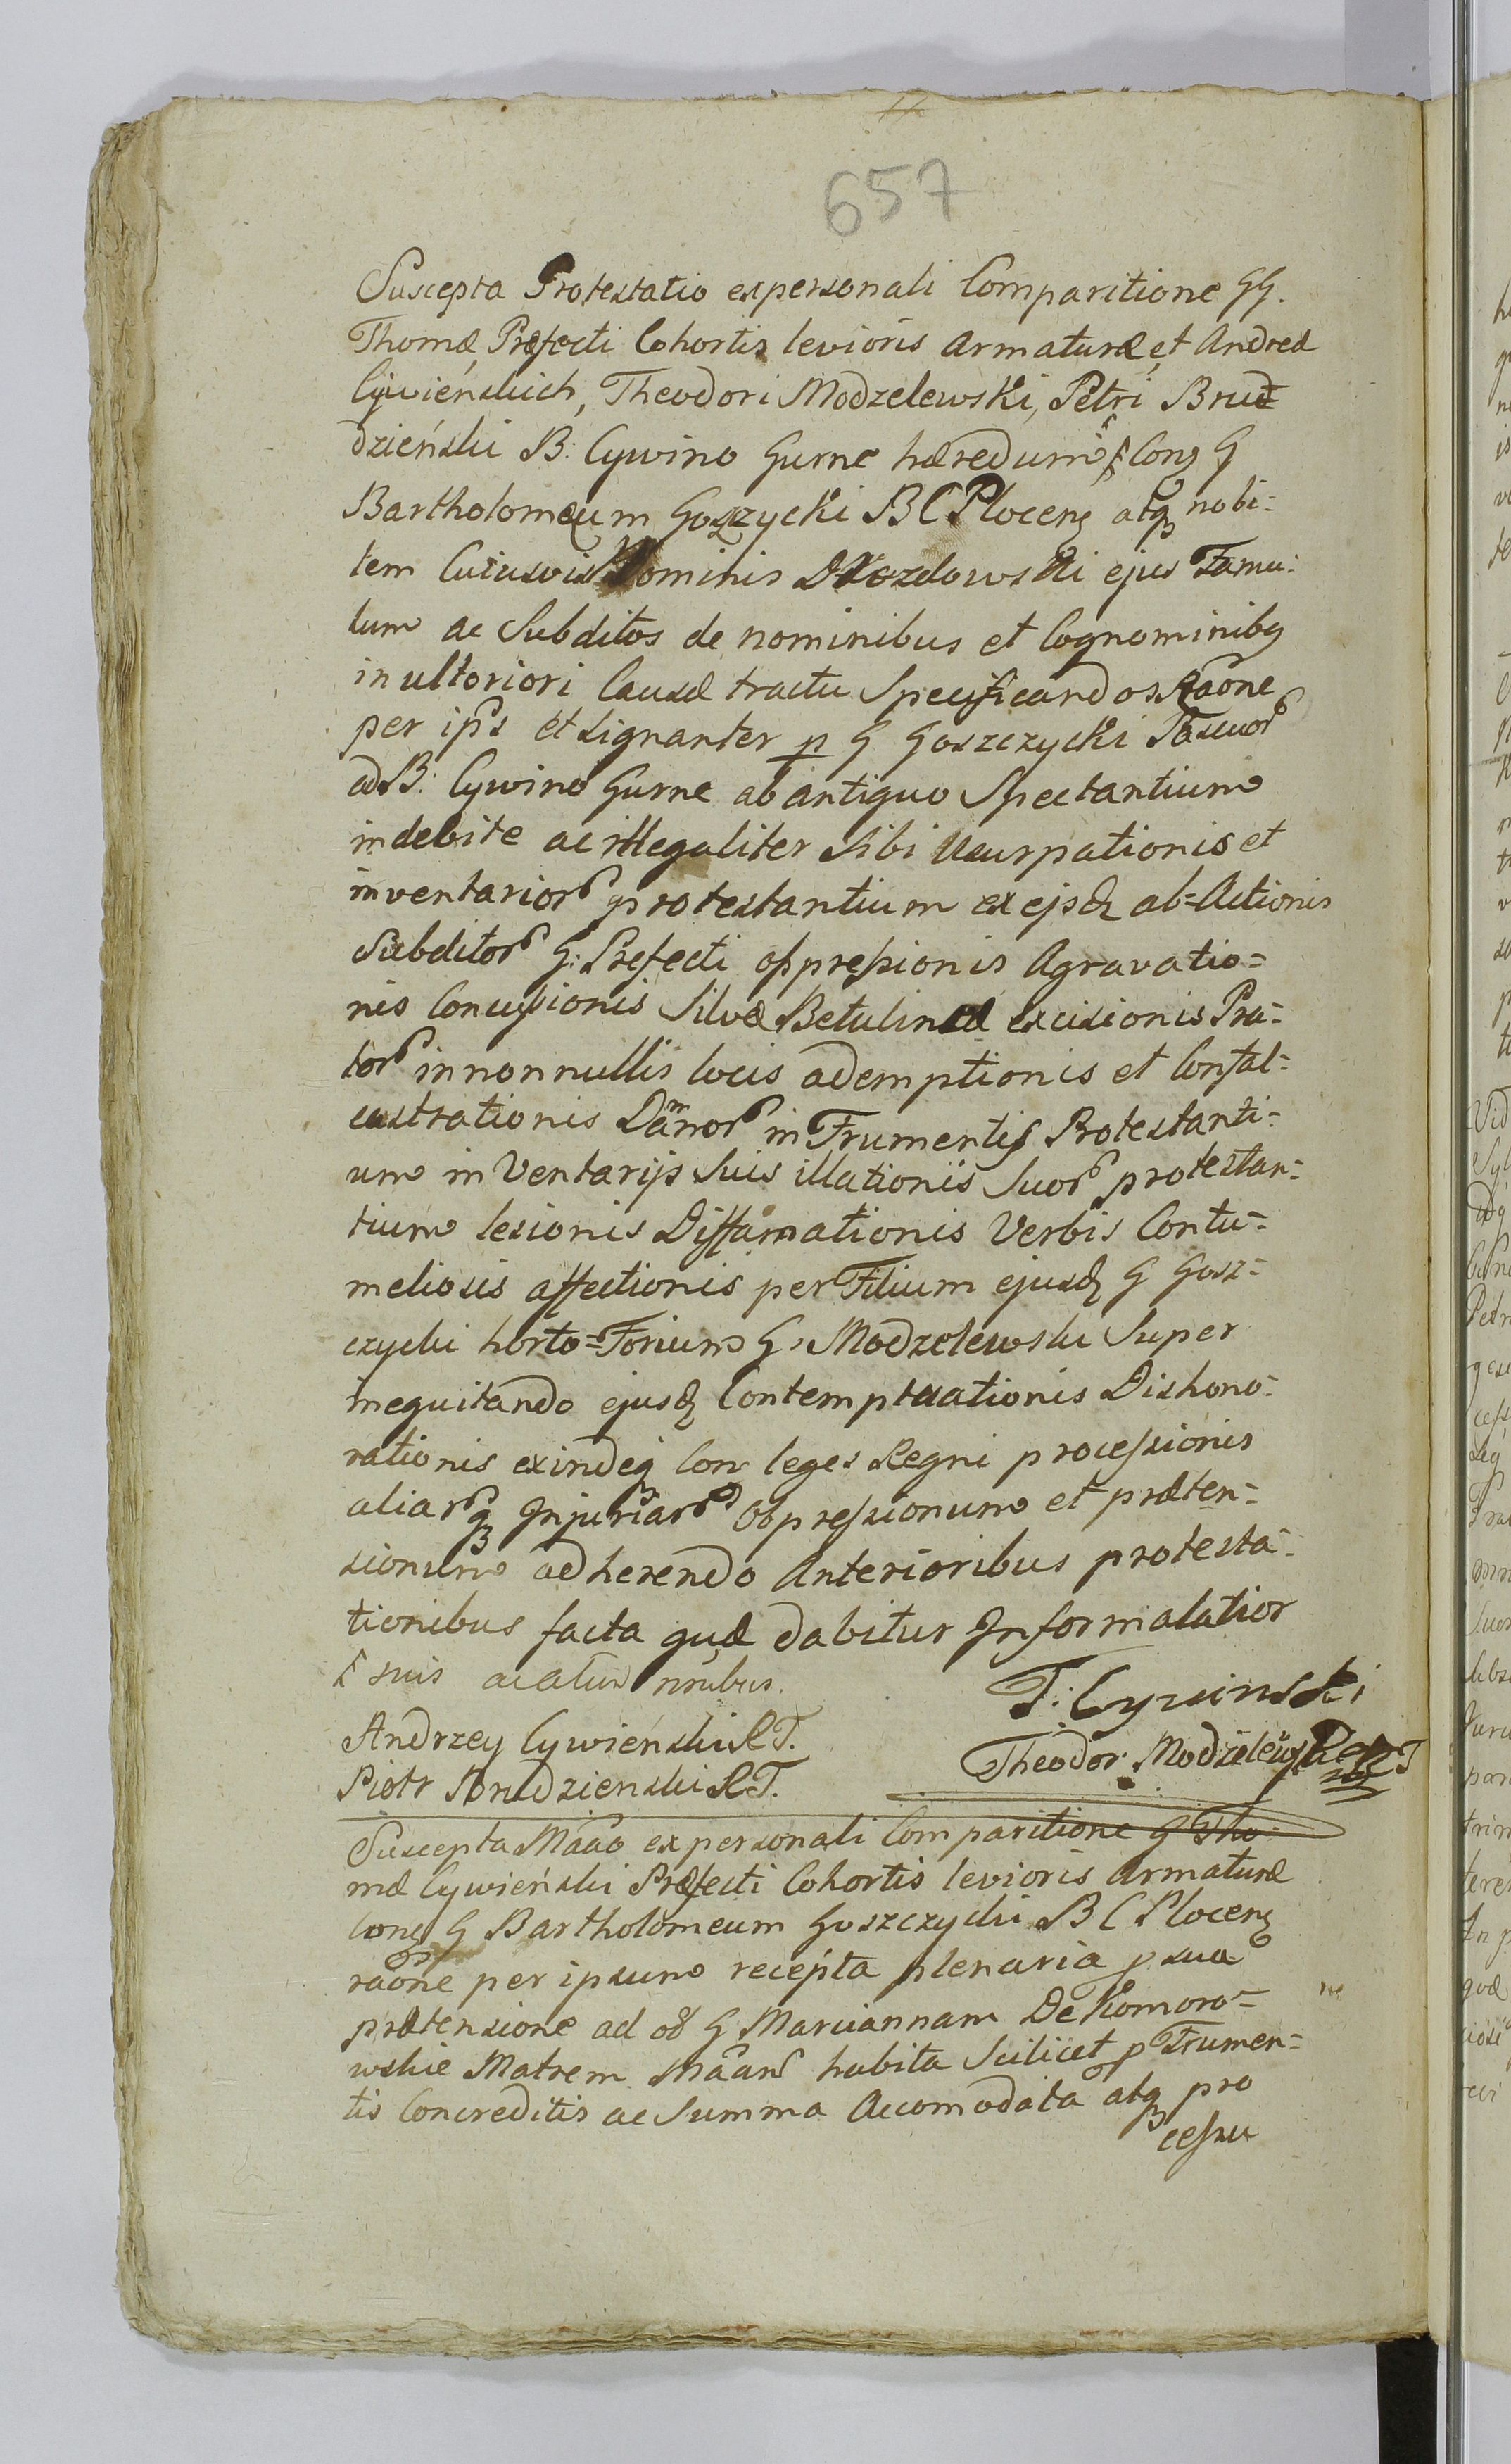 657
Suscepta Protestatio ex personali Comparitione GG.
Thomæ Præfecti Cohortis levioris Armaturæ, et Andreæ
Cywieńskich, Theodori Modzelewski, Petri Brud-
dzieński B: Cywino Gurne hæredum Con G
Bartholomæum Goszczycki B C Plocen atq nobi-
lem Cuiusvis Nominis Drozdowski ejus Famu-
lum ac Subditos de nominibus et Cognominibq
in ulteriori Causæ tractu Specificandos Raone
per ips et signanter p G Goszczycki Pascuor
ad B: Cywino Gurne ab antiquo Spectantium
indebite ac illegaliter sibi Usurpationis et
inventarior protestantium ex ejsd ab-Actionis
Subditor G: Prefecti oppressionis Agravatio-
nis Concussionis Silvæ Betulinæ excisionis Pra-
tor in nonnullis locis ademptionis et Confal-
castrationis Damnor in Frumentis Protestanti-
um inventarijs suis illationis suor protestan-
tium lesionis Diffamationis Verbis Contu-
meliosis affectionis per Filium ejusd G Gosz-
czycki horto-Forium G: Modzelewski Super
inequitando ejusd Contemptuationis Dishono-
rationis exindeq Con leges Regni processionis
aliarq Injuriar Oppressionum et præten-
sionum adherendo Anterioribus protesta-
tionibus facta quæ dabitur Informalatior
suis ac atur nribus.
T: Cywinski
Andrzey Cywieński R T.
Theodor Modzelewski
Piotr Brudzienski R T.
Suscepta Mãao ex personali Comparitione G Tho
mæ Cywieński Præfecti Cohortis levioris Armaturæ
Con G Bartholomeum Goszczycki B C Plocen
raone per ipsum recepta plenaria p sua
prætensione ad oð G Mariannam De Komoro-
wskie Matrem Mãan habita Scilicet p Frumen-
tis Concreditis ac Summa Accomodata atq pro
cessu